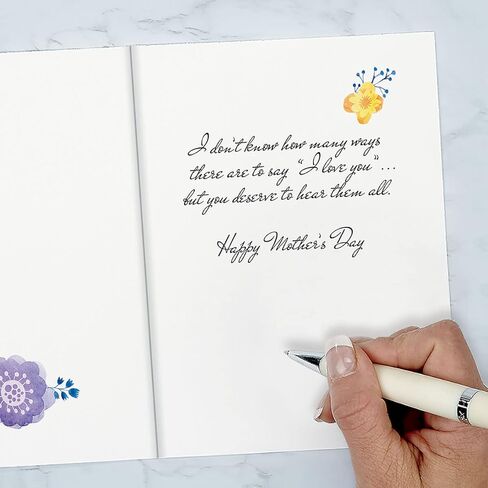 I don't know how many ways
there are to say "I love you"...
but you deserve to hear them all.
Happy Mother's Day